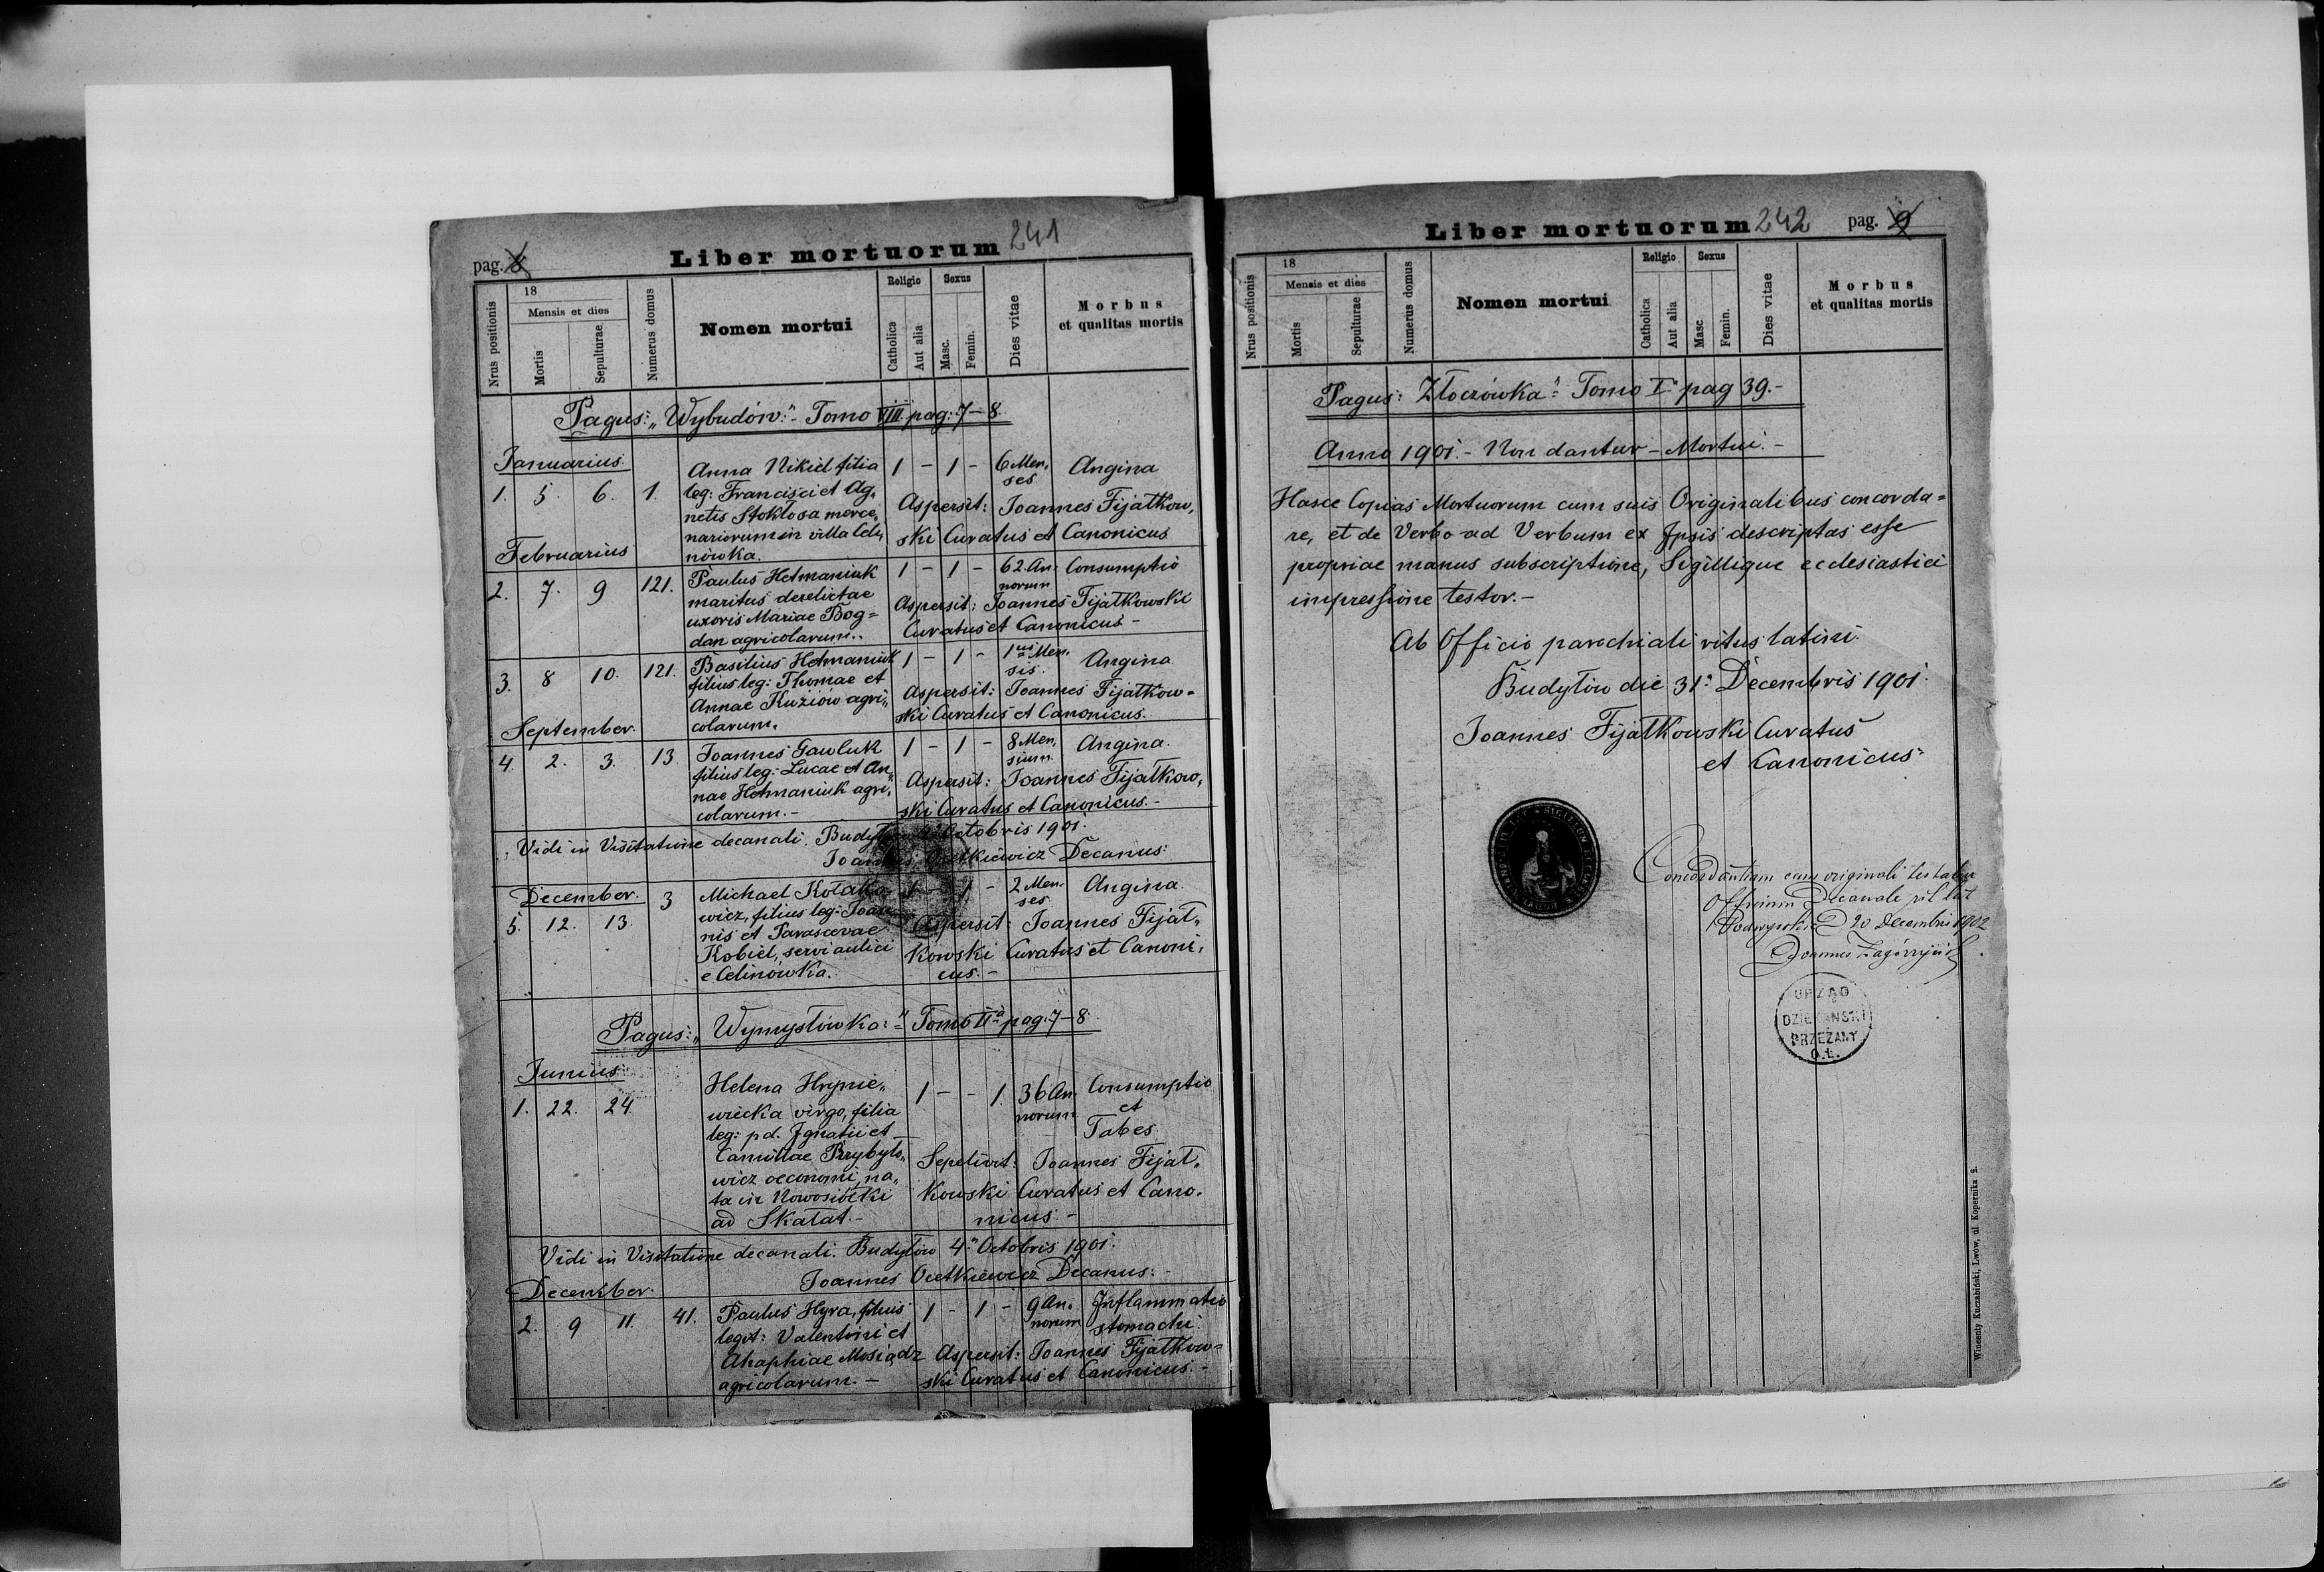 pag. 8 Liber mortuorum 241
Nrus positionis
18
Mensis et dies
Mortis
Sepulturae
Numerus domus
Nomen mortui
Religio
Catholica
Aut alia
Sexus
Masc.
Femin.
Dies vitae
Morbus
et qualitas mortis
Pagus: „Wybudów:" Tomo VIII pag: 7–8.
Januarius
1. 5. 6. 1. Anna Nikiel filia 1 – 1 – 6 Men, Angina
ses
leg: Francisci et Ag,
netis Stoktosa merce,
nariorum in villa Celi,
nówka.
Aspersit: Joannes Fijatkow,
ski Curatus et Canonicus
Februarius
2. 7. 9 121. Paulus Hetmaniuk 1 – 1 – 62 An- Consumptio
norum
maritus derelictae
uxoris Mariae Bog=
dan agricolarum..
Aspersit: Joannes Fijatkowski
Curatus et Canonicus –
3. 8 10. 121. Basilius Hetmaniuk 1 – 1 – 1 Men, Angina
sis.
filius leg: Thomae et
Annae Kuziów agri,
colarum.
Aspersit: Joannes Fijatkow=
ski Curatus et Canonicus.
September.
4. 2. 3. 13 Joannes Gawluk 1 – 1 – 8 Men, Angina.
sium.
filius leg: Lucae et An,
nae Hetmaniuk agri,
colarum. –
Aspersit: Joannes Fijatkow,
ski Curatus et Canonicus. –
Vidi in Visitatione decanali. Octobris 1901.
Decanus:
December.
5. 12. 13. 3 Michael 1 – 1 – 2 Men. Angina.
ses
wicz, filius leg: Joan
nis et Parascevae
Kobiel, servi aulici
e Celinówka.
Aspersit: Joannes Fijat,
kowski Curatus et Canoni,
cus. –
Pagus: „Wymysłówka:" Tomo II pag: 7–8.
Junius
1. 22. 24. Helena Hrynie, 1 – – 1. 36 An. Consumptio
norum et
Tabes.
wiecka virgo, filia
leg: p d. Ignatii et
Camillae Przybyło,
wicz oeconomi, na,
ta in Nowosiółki
ad Skałat. –
Sepelivit: Joannes Fijat,
kowski Curatus et Cano,
nicus. –
Vidi in Visitatione decanali. Budyłów 4. Octobris 1901.
Joannes Ocetkiewicz Decanus:
December.
2. 9 11. 41. Paulus Hyra, filius 1 – 1 – 9 An. Inflammatio
norum stomachi.
legit: Valentini et
Ahaphiae Mosiądz
agricolarum. –
Aspersit: Joannes Fijatkow=
ski Curatus et Canonicus. –
Liber mortuorum 242 pag. 9
Nrus positionis
18
Mensis et dies
Mortis
Sepulturae
Numerus domus
Nomen mortui
Religio
Catholica
Aut alia
Sexus
Masc
Femin.
Dies vitae
Morbus
et qualitas mortis
Pagus: Złoczówka" Tomo I pag 39. –
Anno 1901. – Non dantur – Mortui. –
Hasce Copias Mortuorum cum suis Originalibus concorda=
re, et de Verbo ad Verbum ex Ipsis descriptas esse
propriae manus subscriptione, Sigillique ecclesiastici
impressione testor. –
Ab Officio parochiali ritus latini.
Budyłów die 31. Decembris 1901.
Joannes Fijatkowski Curatus
et Canonicus.
Concordantiam cum originali testatur
Officium Decanale rit lat
D 20 Decembris 1902
Joannes
URZĄD
DZIEKAŃSKI
BRZEŻANY
O.Ł.
Wincenty Kuczabiński, Lwów, ul. Kopernika 2.